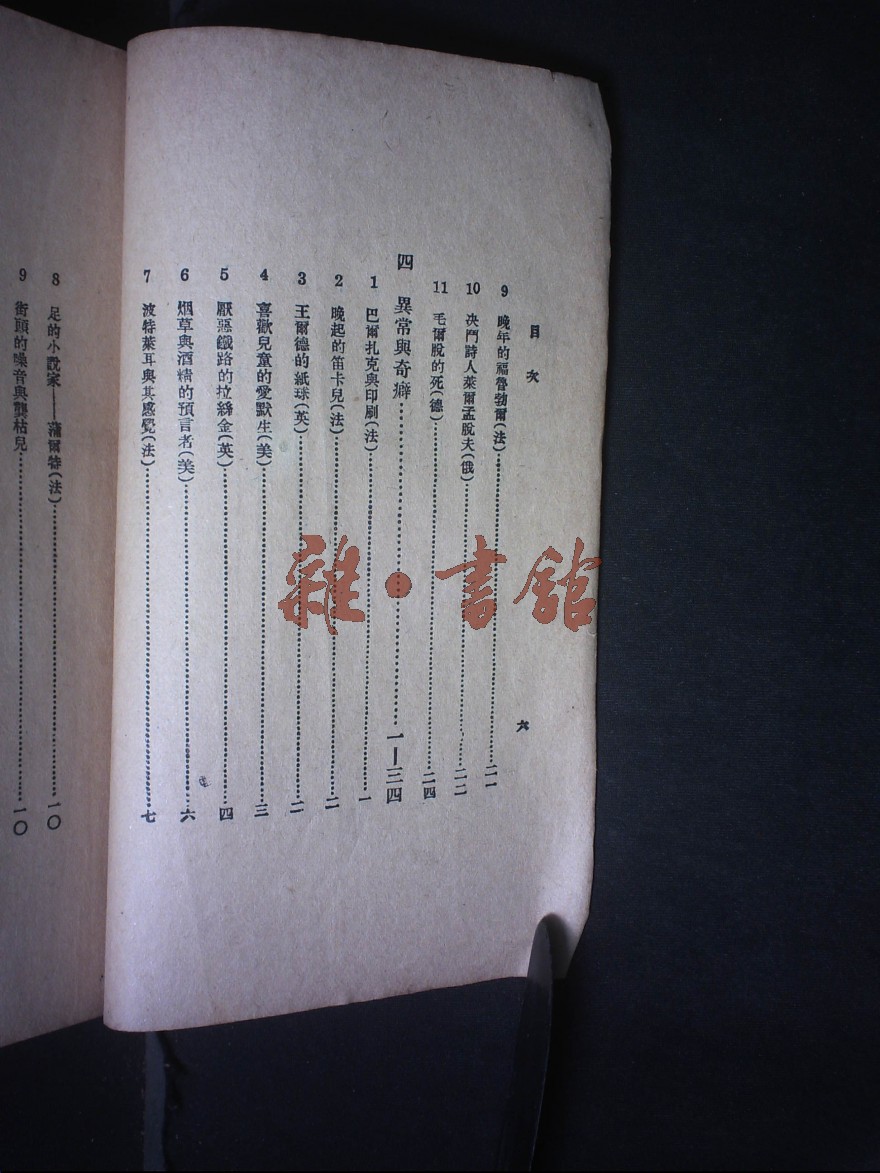 目次
六
9 晚年的福魯勃爾(法)……二一
10 决鬥詩人萊爾孟脫夫(俄)……二二
11 毛爾脫的死(德)……二四
四 異常與奇癖……一—三四
1 巴爾扎克與印刷(法)……一
2 晚起的笛卡兒(法)……二
3 王爾德的紙球(英)……二
4 喜歡兒童的愛默生(美)……三
5 厭惡鐵路的拉絲金(英)……四
6 烟草與酒精的預言者(美)……六
7 波特萊耳與其感覺(法)……七
8 足的小說家——蒲爾特(法)……一〇
9 街頭的噪音與龔枯兒……一〇
雜·書館